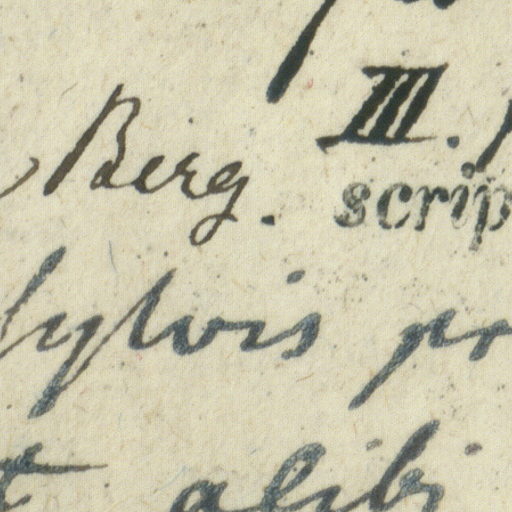 Berg. III.
scrip
sylvis pr
t alibi